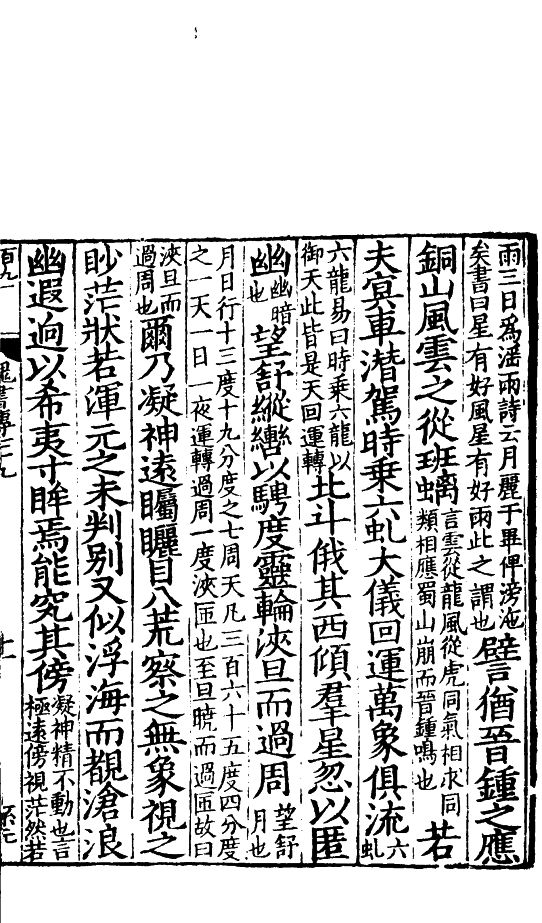 雨三日爲滛雨詩云月麗于畢俾滂沲
矣書曰星有好風星有好雨此之謂也譬猶晉鍾之應
銅山風雲之從班螭言雲從龍風從虎同氣相求同
類相應蜀山崩而晉鍾鳴也若
夫冥車潛駕時乘六虬大儀回運萬象俱流六虬
六龍易曰時乗六龍以
御天此皆是天回運轉北斗俄其西傾羣星忽以匿
幽幽暗也望舒縱轡以騁度靈輪浹旦而過周望舒月也
月日行十三度十九分度之七周天凡三百六十五度四分度
之一天一日一夜運轉過周一度浹匝也至旦暁而過匝故曰
浹旦而
過周也爾乃凝神遠矚矖目八荒察之無象視之
眇茫狀若渾元之未判别又似浮海而覩滄浪
幽遐迥以希夷寸眸焉能究其傍凝神精不動也言
極遠傍視茫然若
百九一